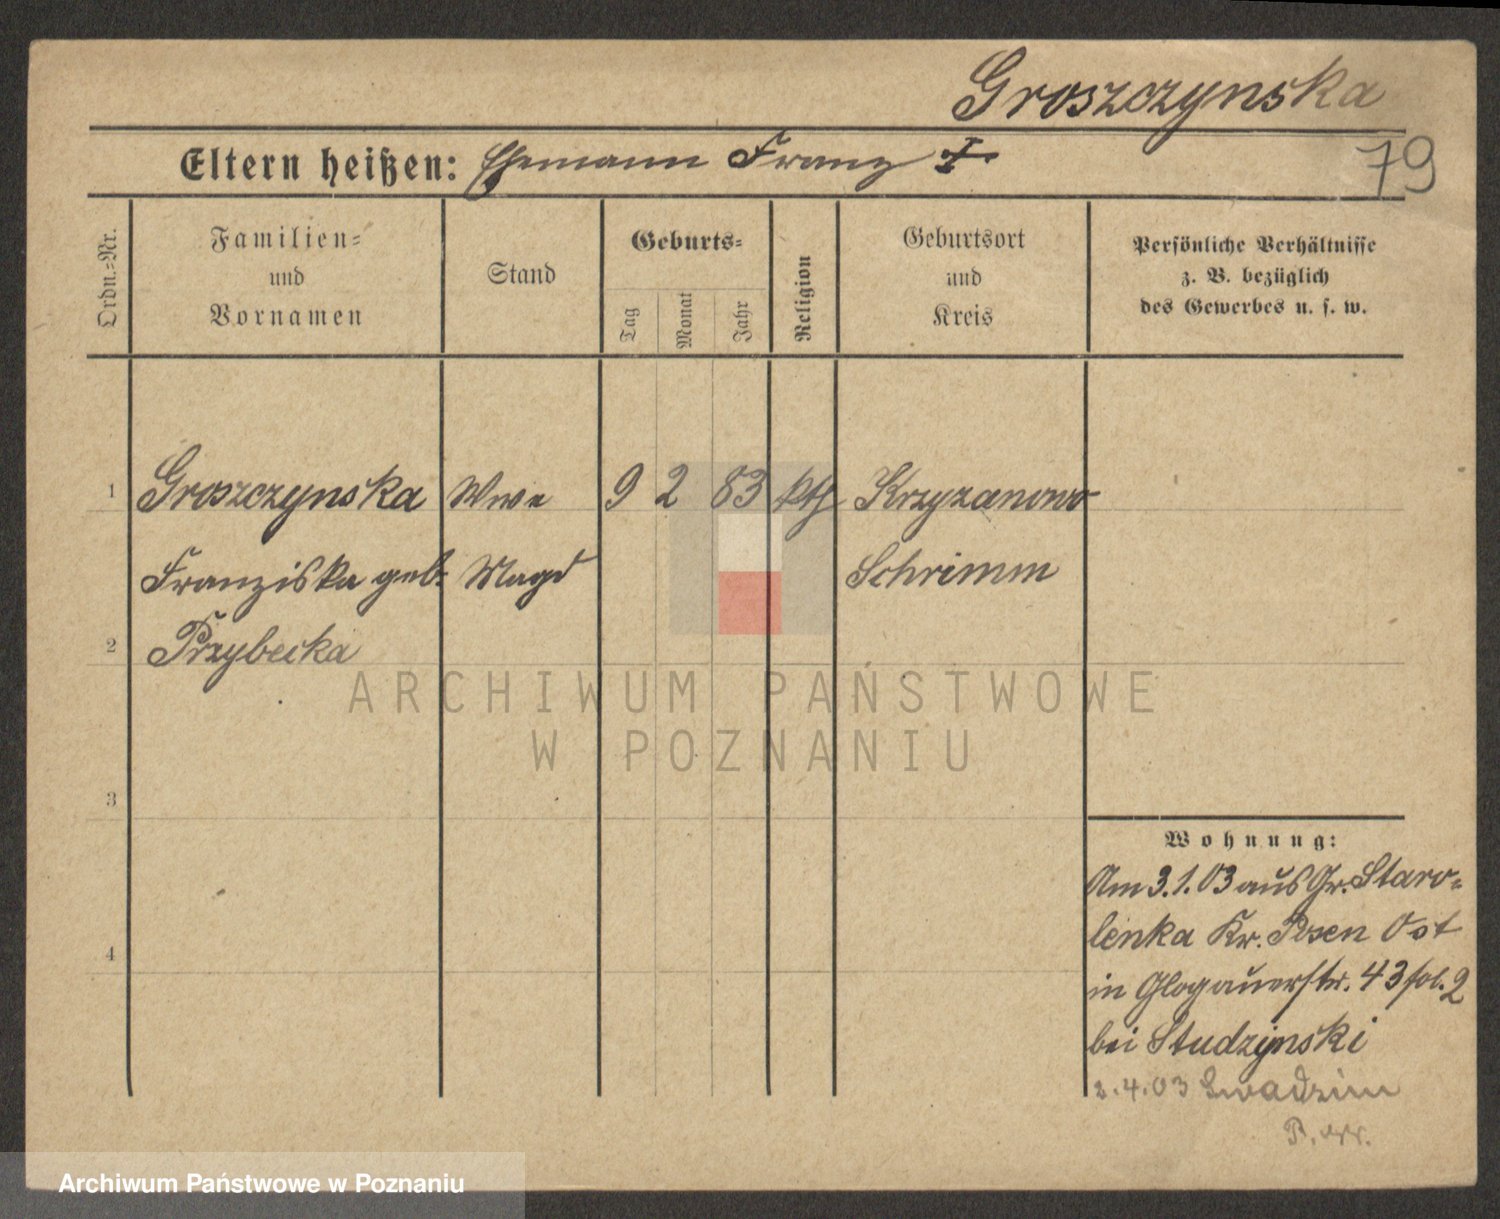 Groszczynska
79
Eltern heißen: Ehemann Franz †
Ordn.=Nr.
Familien=
und
Vornamen
Stand
Geburts=
Tag
Monat
Jahr
Religion
Geburtsort
und
Kreis
Persönliche Verhältnisse
z. B. bezüglich
des Gewerbes u. s. w.
1 Groszczynska Wwe 9 2 83 kth Krzyzanowo
Franziska geb. Magd Schrimm
2 Przybecka
ARCHIWUM PAŃSTWOWE
W POZNANIU
3
4
Wohnung:
Am 3.1.03 aus Gr. Staro=
lenka Kr. Posen Ost
in Glogauerstr. 43 fol. 2
bei Studzynski
2.4.03
Archiwum Państwowe w Poznaniu